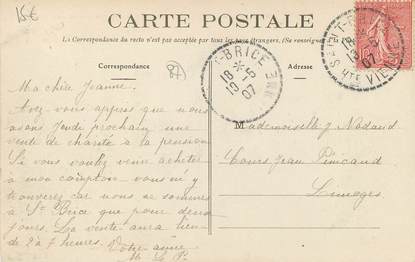 15€
CARTE POSTALE
La Correspondance du recto n'est pas acceptée par tous les pays étrangers. (Se renseigner
Correspondance
Adresse
87
T-BRICE
18 * 5
19
07
NNE
SAINT-B
18
07
HTE VIENNE
Ma chère Jeanne.
Avez vous appris que nous
avons jeudi prochain une
vente de charité à la pension
Si vous voulez venir acheter
à mon comptoir vous m'y
trouverez car nous ne sommes
à St Brice que pour deux
jours. La vente aura lieu
de 2 à 7 heures. Votre amie
Mademoiselle J. Nadaud
Cours Jean Pénicaud
Limoges